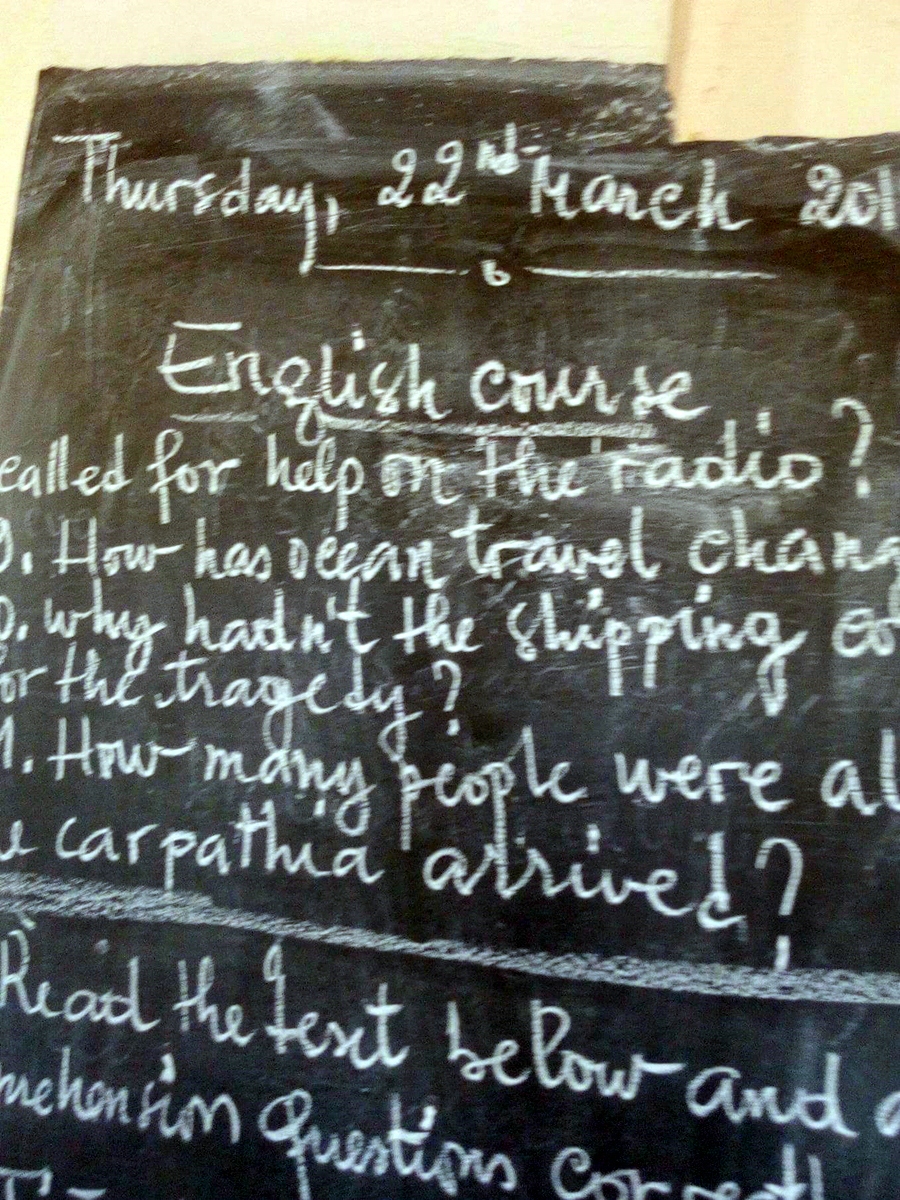 Thursday, 22nd March 201
English course
called for help on the radio?
9. How has ocean travel chang
0. why hadn't the shipping co
for the tragedy?
1. How many people were al
e carpathia arrived?
Read the text below and a
prehension Questions correctl